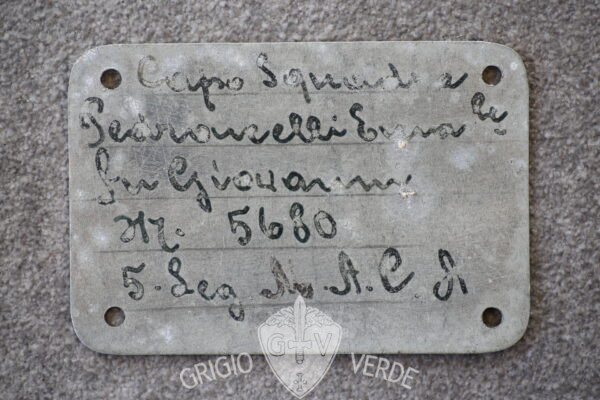 Capo Squadra
Pedroncelli Emma le
fu Giovanni
Nr. 5680
5. Leg M. A. C. A
GRIGIO GV VERDE